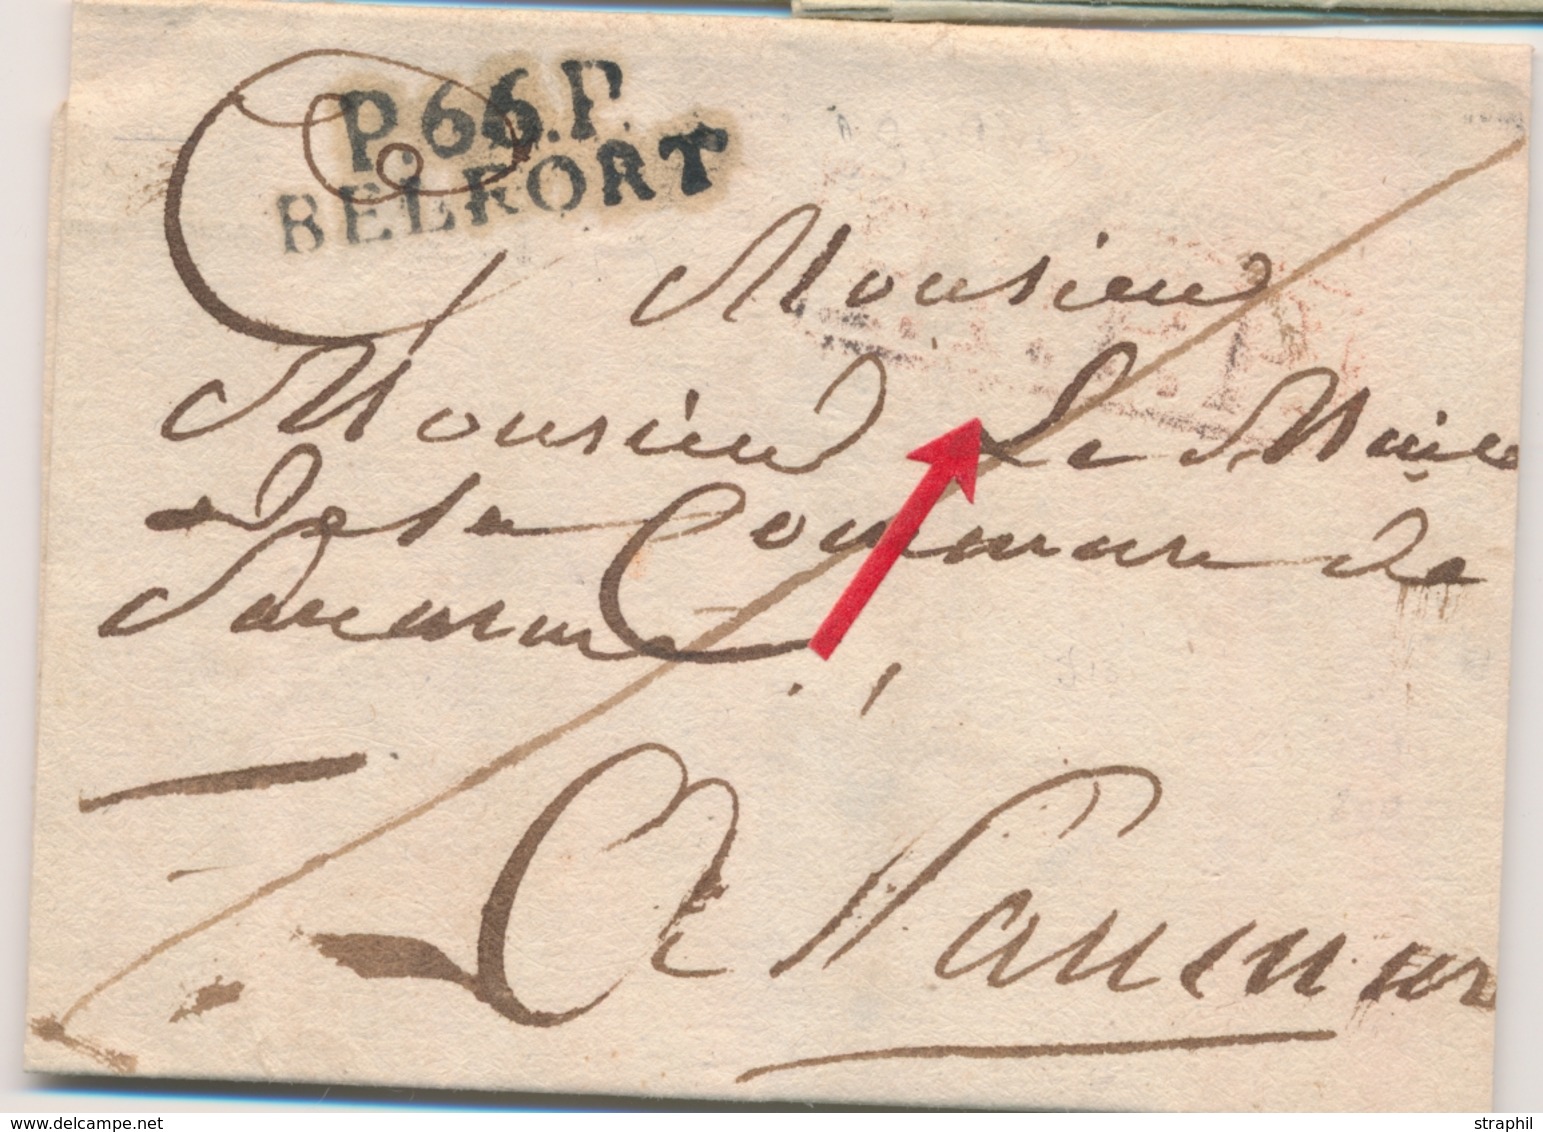 P.66.P.
BELFORT
Monsieur
Monsieur Le Maire
de la Commune de
A
www.delcampe.net
straphil